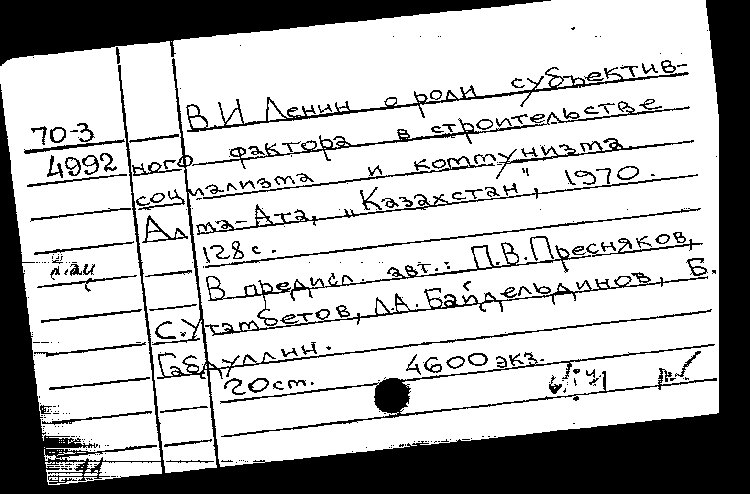 70-3
4992
В.И Ленин о роли субъектив-
ного фактора в строительстве
социализма и коммунизма.
Алма-Ата, „Казахстан", 1970.
128 с.
В предисл. авт.: П.В.Пресняков,
С.Утамбетов, Л.А. Байдельдинов, Б.
Габдуллин.
20 ст. 4600 экз.
11